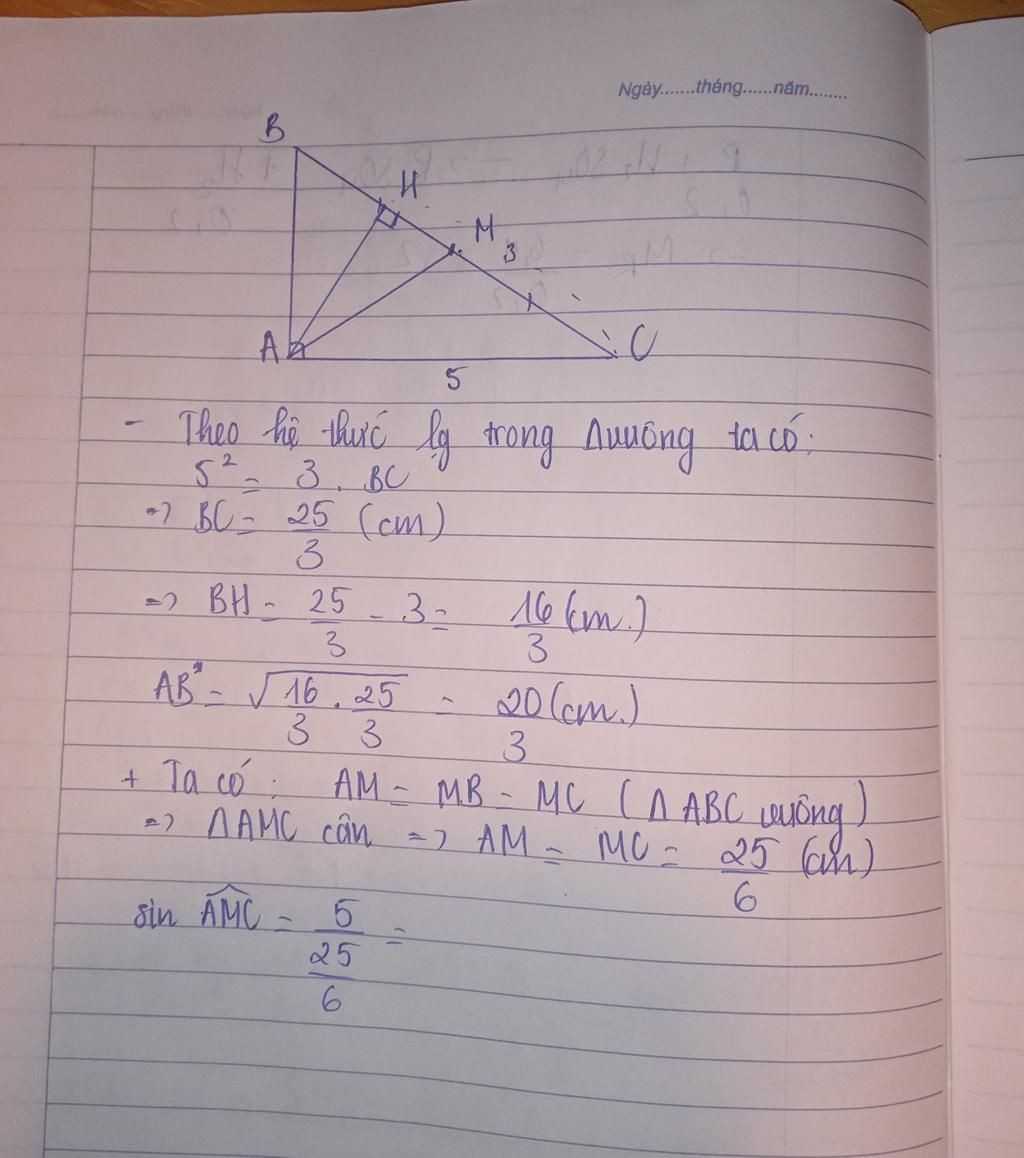 Ngày.......tháng......năm........
B
H
M
3
A
C
5
- Theo hệ thức lg trong Δvuông ta có:
5² = 3 . BC
=> BC = 25/3 (cm)
=> BH = 25/3 - 3 = 16/3 (cm.)
AB = √(16/3 . 25/3) = 20/3 (cm.)
+ Ta có: AM = MB = MC (Δ ABC vuông)
=> ΔAMC cân => AM = MC = 25/6 (cm)
sin AMC = 5/(25/6) =